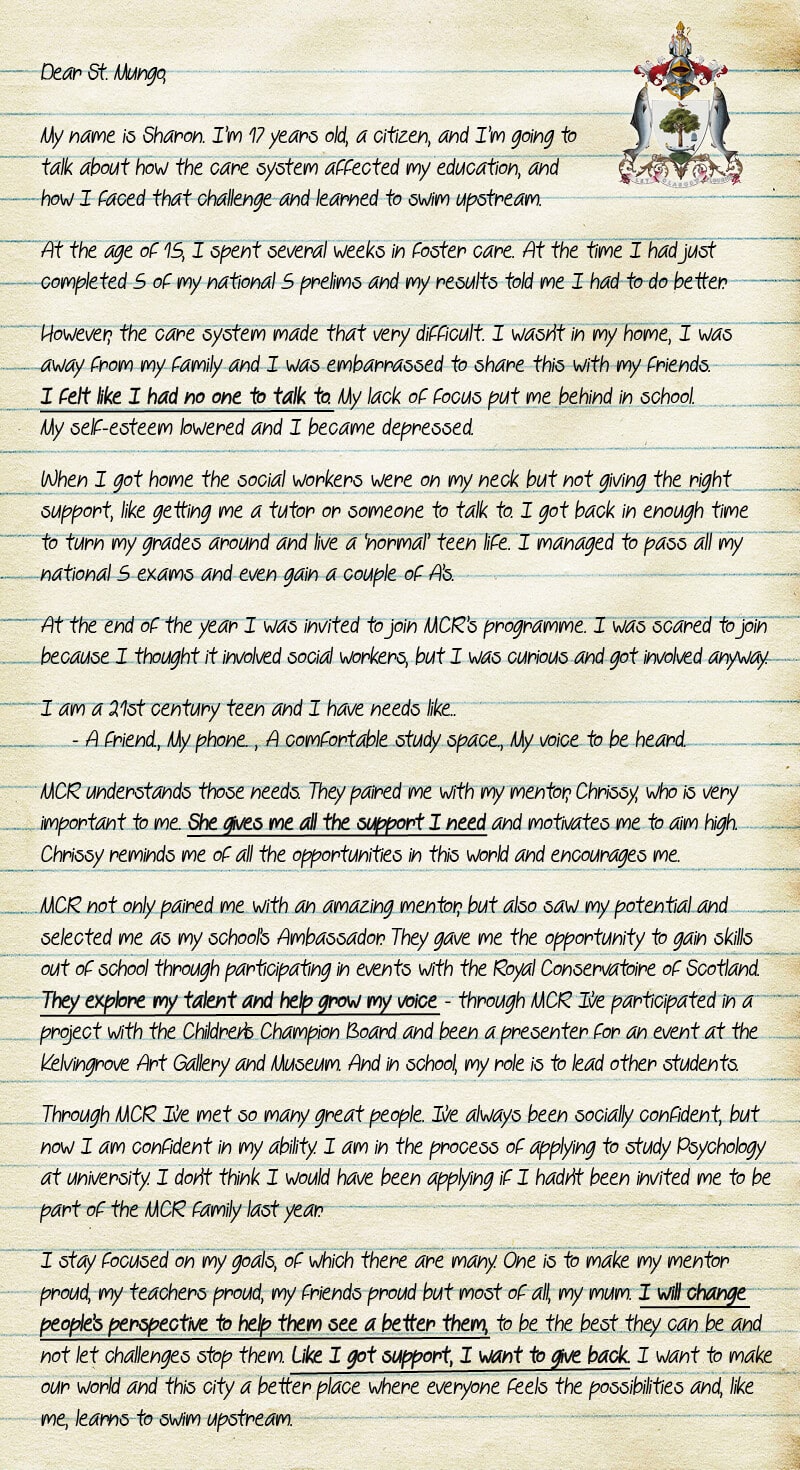 Dear St. Mungo,
My name is Sharon. I'm 17 years old, a citizen, and I'm going to
talk about how the care system affected my education, and
how I faced that challenge and learned to swim upstream.
At the age of 15, I spent several weeks in foster care. At the time I had just
completed 5 of my national 5 prelims and my results told me I had to do better.
However, the care system made that very difficult. I wasn't in my home, I was
away from my family and I was embarrassed to share this with my friends.
I felt like I had no one to talk to. My lack of focus put me behind in school.
My self-esteem lowered and I became depressed.
When I got home the social workers were on my neck but not giving the right
support, like getting me a tutor or someone to talk to. I got back in enough time
to turn my grades around and live a 'normal' teen life. I managed to pass all my
national 5 exams and even gain a couple of A's.
At the end of the year I was invited to join MCR's programme. I was scared to join
because I thought it involved social workers, but I was curious and got involved anyway.
I am a 21st century teen and I have needs like..
- A friend., My phone. , A comfortable study space., My voice to be heard.
MCR understands those needs. They paired me with my mentor, Chrissy, who is very
important to me. She gives me all the support I need and motivates me to aim high.
Chrissy reminds me of all the opportunities in this world and encourages me.
MCR not only paired me with an amazing mentor, but also saw my potential and
selected me as my school's Ambassador. They gave me the opportunity to gain skills
out of school through participating in events with the Royal Conservatoire of Scotland.
They explore my talent and help grow my voice - through MCR I've participated in a
project with the Children's Champion Board and been a presenter for an event at the
Kelvingrove Art Gallery and Museum. And in school, my role is to lead other students.
Through MCR I've met so many great people. I've always been socially confident, but
now I am confident in my ability. I am in the process of applying to study Psychology
at university. I don't think I would have been applying if I hadn't been invited me to be
part of the MCR family last year.
I stay focused on my goals, of which there are many. One is to make my mentor
proud, my teachers proud, my friends proud but most of all, my mum. I will change
people's perspective to help them see a better them, to be the best they can be and
not let challenges stop them. Like I got support, I want to give back. I want to make
our world and this city a better place where everyone feels the possibilities and, like
me, learns to swim upstream.